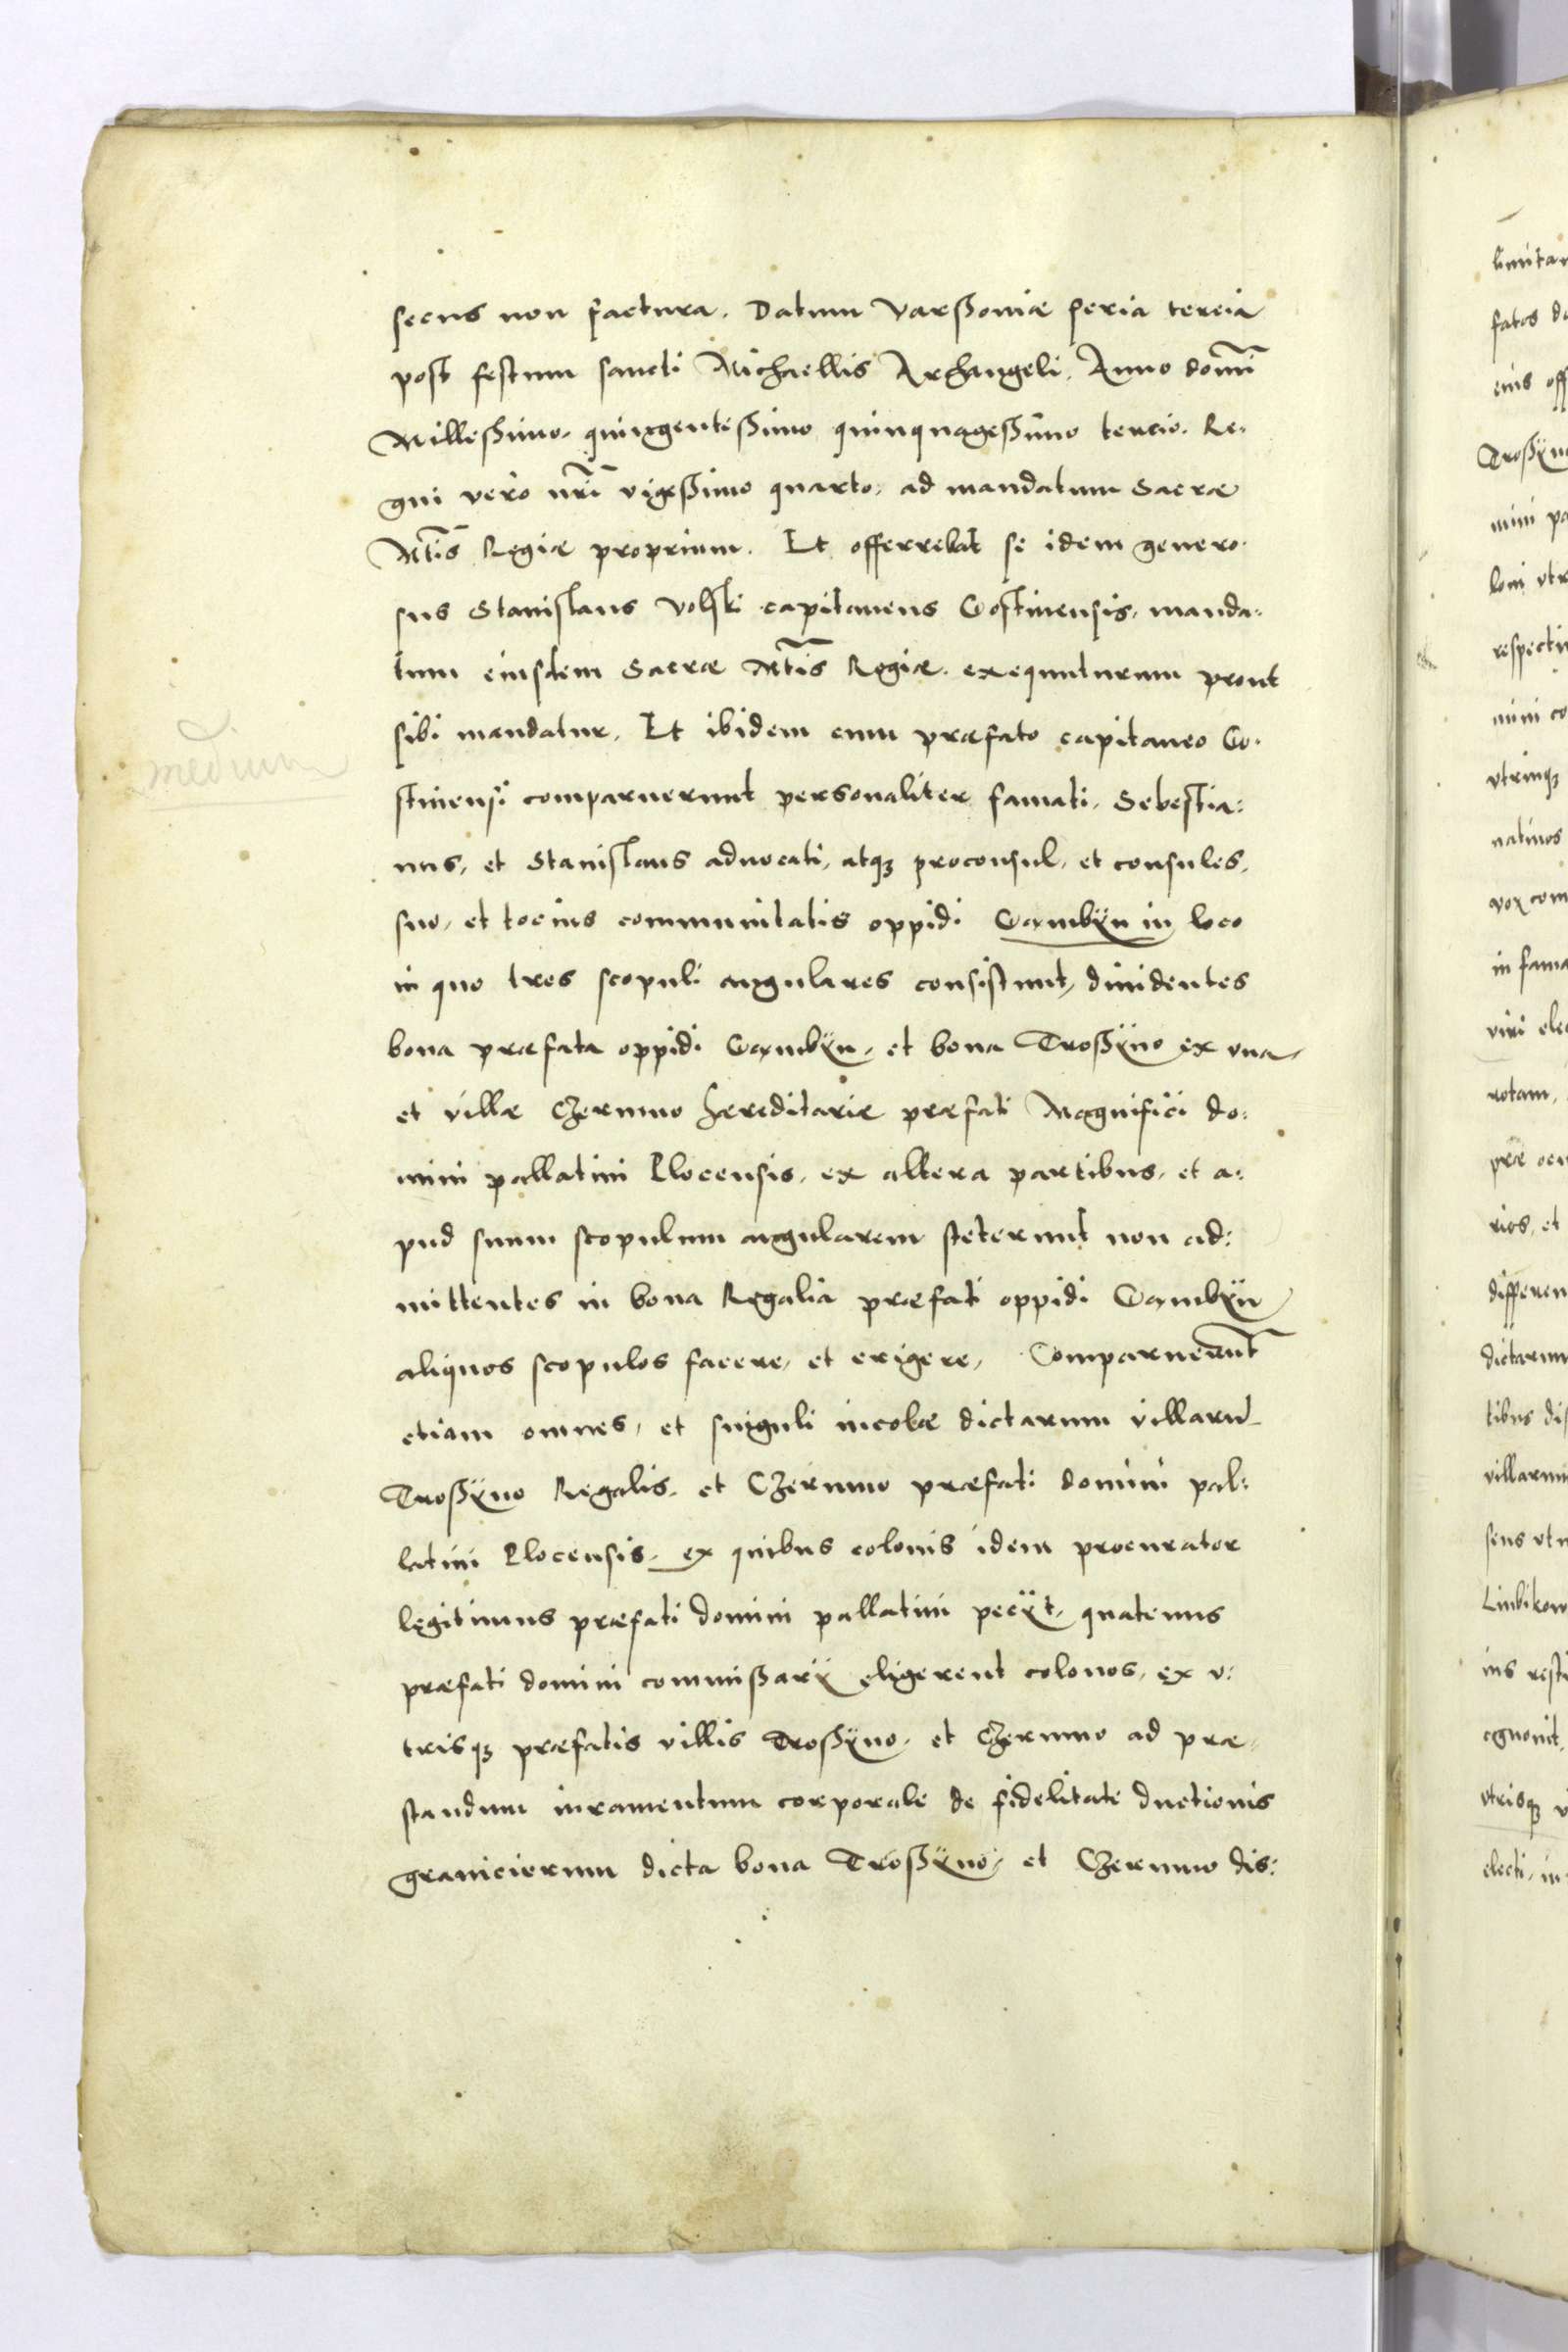 secus non factura. Datum Varßoniæ feria tercia
post festum sancti Michaellis Archangeli, Anno domi
Milleßimo, quingenteßimo quinquageßimo tercio. Re-
gni vero nri vigeßimo quarto, ad mandatum Sacræ
Mtis Regiæ proprium. Et offerrebat se idem genero-
sus Stanislaus Volski capitaneus Gostinensis, manda:
tum eiusdem Sacræ Mtis Regiæ exequuturum prout
sibi mandatur, Et ibidem cum præfato capitaneo Go-
stinensi comparuerunt personaliter famati, Sebestia:
nus, et Stanislaus aduocati, atqꝫ proconsul, et consules,
suo, et tocius communitatis oppidi Gambÿn in loco
in quo tres scopuli angulares consistunt, diuidentes
bona præfata oppidi Gambÿn, et bona Troßÿno ex vna,
et villæ Czermno hæreditariæ præfati Magnifici do:
mini pallatini Plocensis, ex altera partibus, et a:
pud suum scopulum angularem steterunt non ad:
mittentes in bona Regalia præfati oppidi Gambÿn
aliquos scopulos facere, et erigere, Comparuerunt
etiam omnes, et singuli incolæ dictarum villaru
Troßÿno Regalis, et Czermno præfati domini pal:
latini Plocensis, ex quibus colonis idem procurator
legitimus præfati domini pallatini pecÿt, quatenus
præfati domini commißarÿ eligerent colonos, ex v:
trisqꝫ præfatis villis Troßÿno, et Czermno ad præ-
standum iuramentum corporale de fidelitate ductionis
granicierum dicta bona Troßÿno, et Czermno dis:
medium
fatos
eius off
Troßÿno
mini
respectiu
vtrinqꝫ
natiuos
in fama
viri ele
rotam,
rios, et
differen
dictarum
tibus dis
villarum
vtrisqꝫ
electi, in